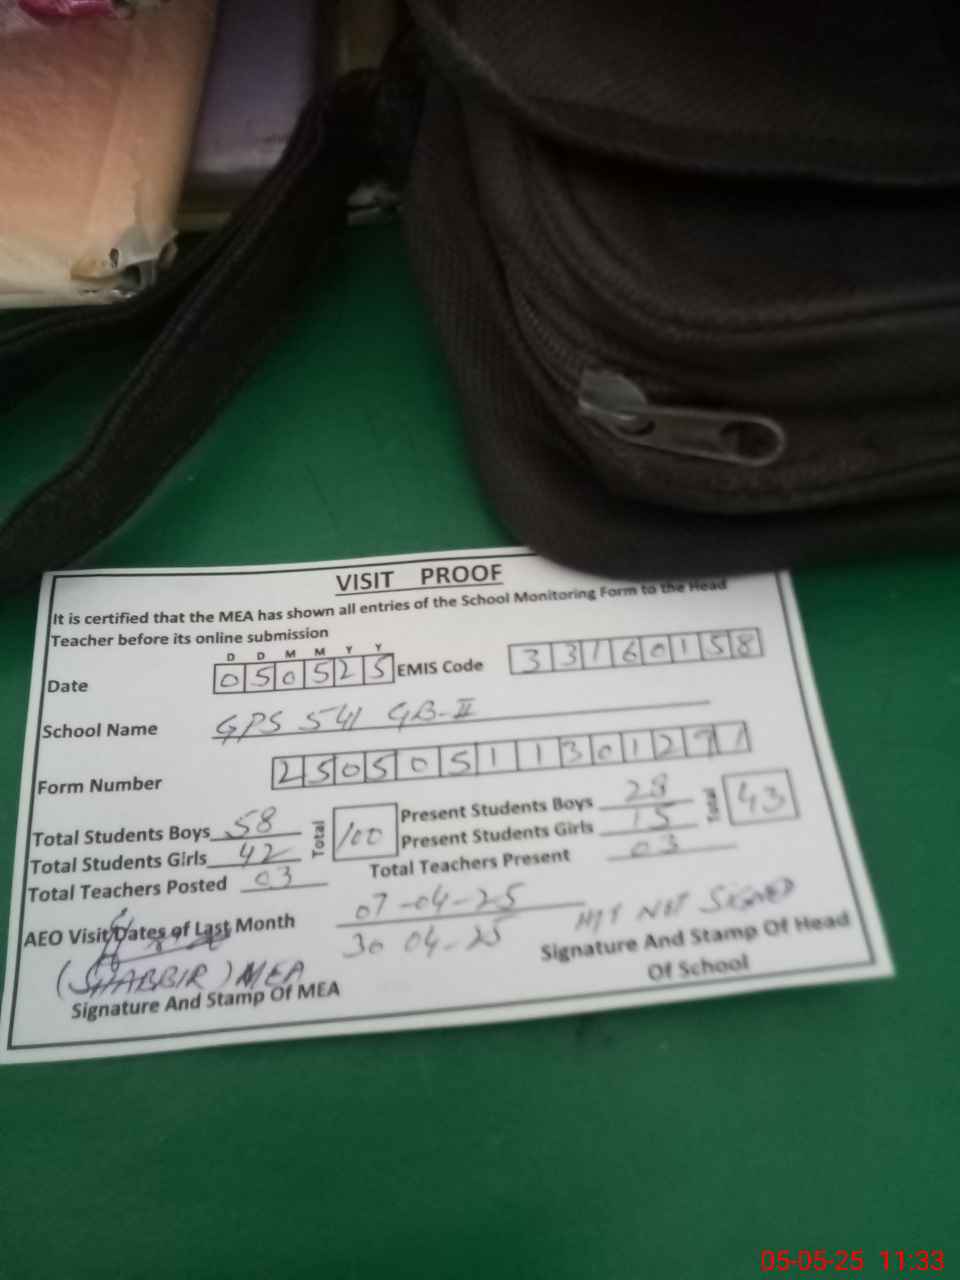 VISIT PROOF
It is certified that the MEA has shown all entries of the School Monitoring Form to the Head
Teacher before its online submission
D D M M Y Y
Date 050525 EMIS Code 33160158
School Name GPS 541 GB-II
Form Number 25050511301291
Total Students Boys 58 Total 100 Present Students Boys 28 Total 43
Total Students Girls 42 Present Students Girls 15
Total Teachers Posted 03 Total Teachers Present 03
AEO Visit Dates of Last Month 07-04-25
30 04-25
NOT Signed
(SHABBIR) MEA
Signature And Stamp Of MEA
Signature And Stamp Of Head
Of School
05-05-25 11:33